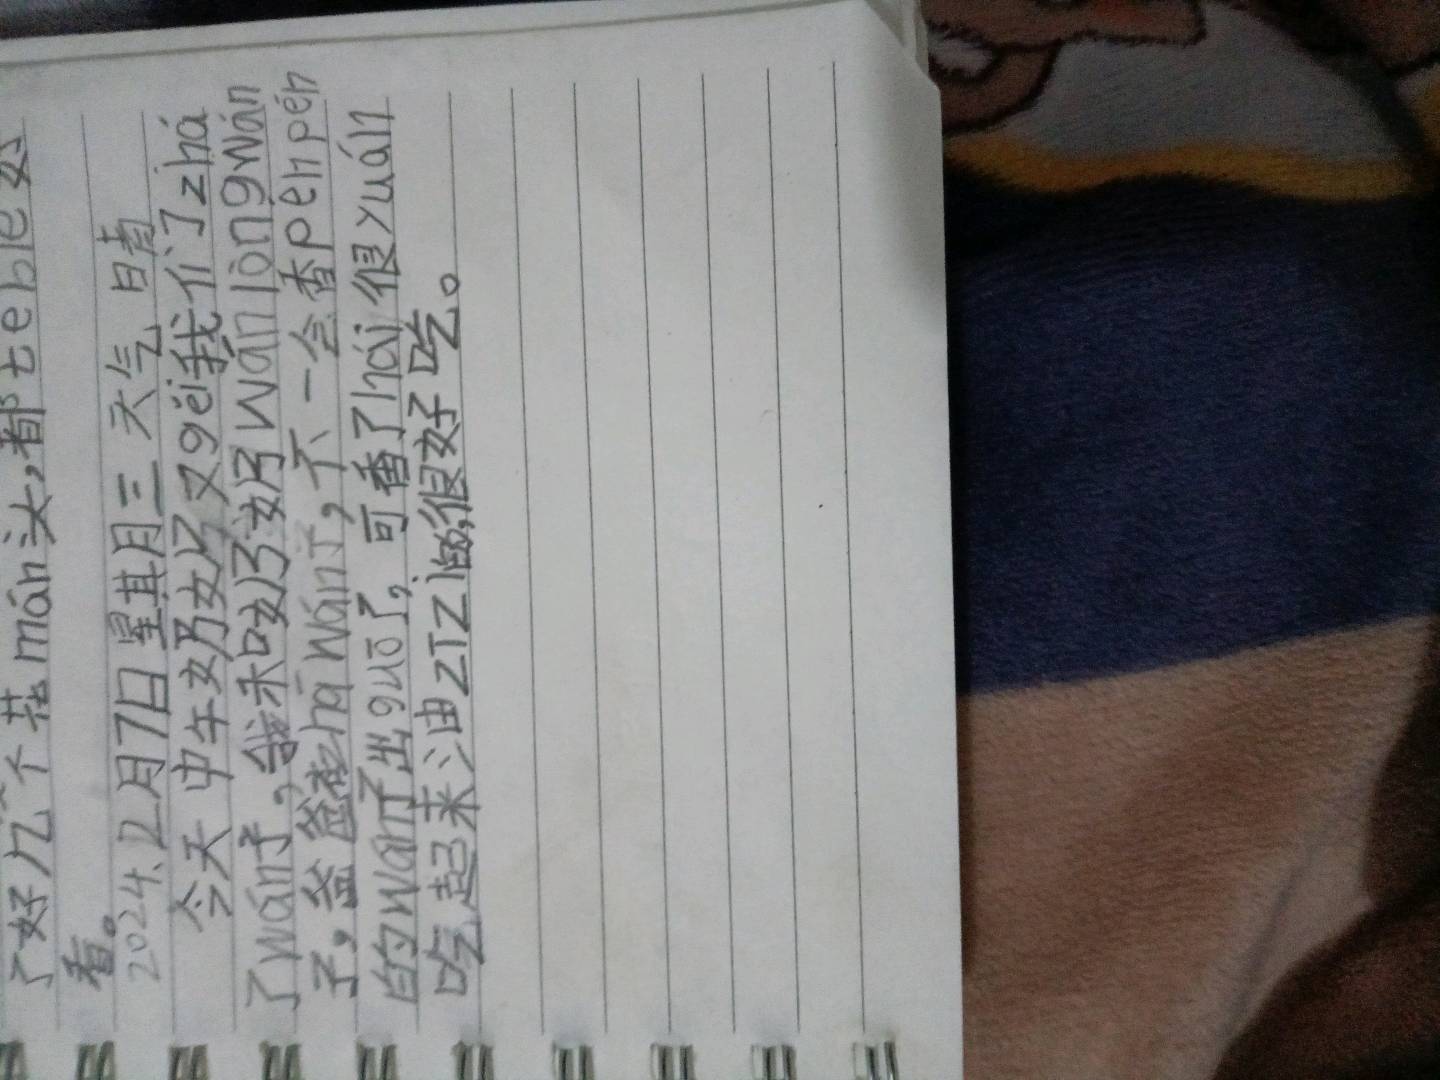 了好几个花mán头,都tebie好
看。
2024.12月7日星其月三 天气 日青
今天 中午奶奶又gěi我们了zhá
了wán子,我和奶奶wán lòng wán
子,爸爸zhá wán子,不一会香pēnpēn
的wán子出guō了,可香了!hái很yuán
吃起来氵由zīzī的,很好吃。